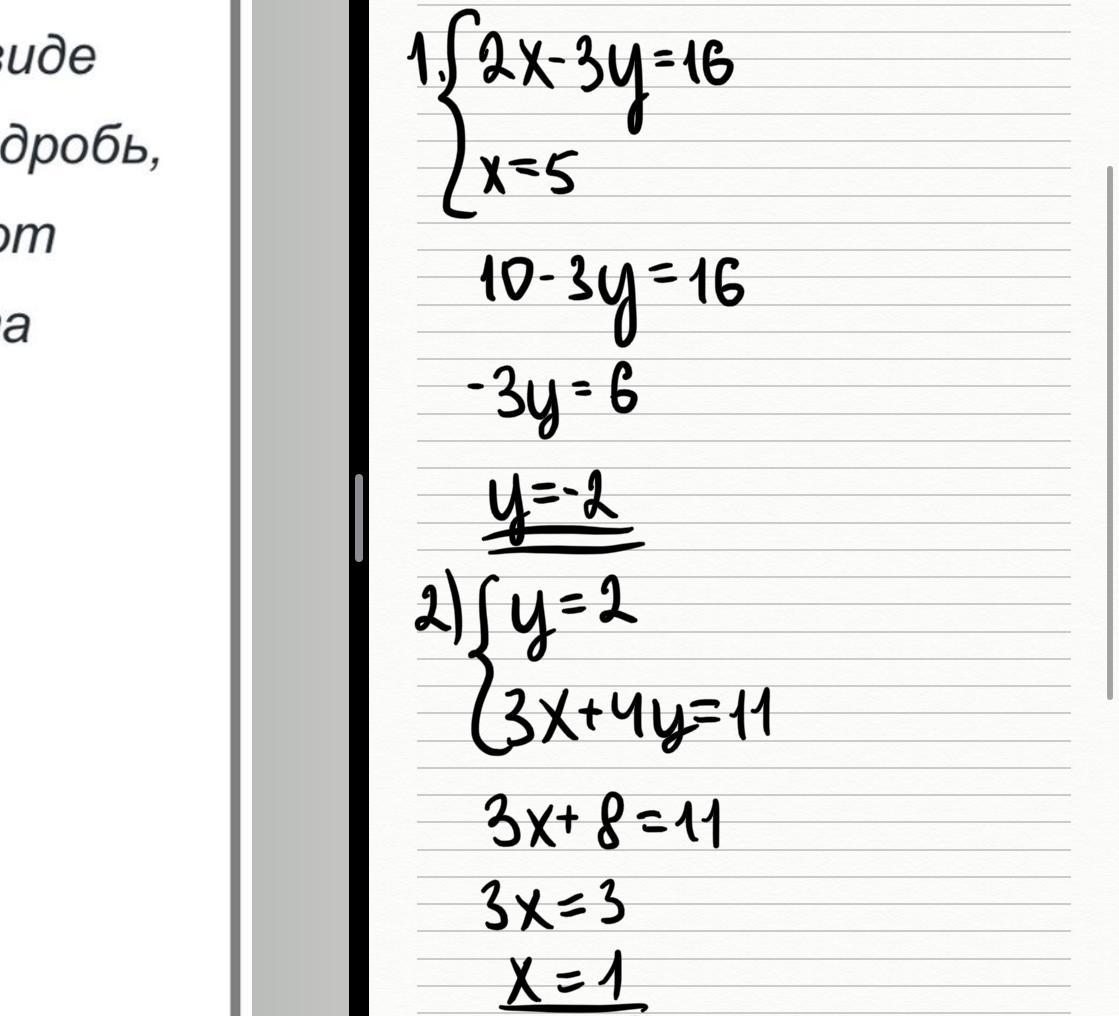 дробь,
1. { 2x-3y=16
x=5
10-3y=16
-3y=6
y=-2
2) { y=2
3x+4y=11
3x+8=11
3x=3
x=1